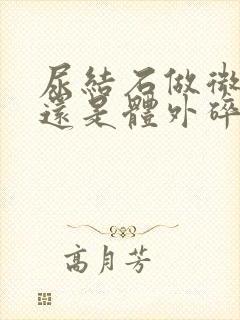 尿結石做微
還是體外碎
高月芳